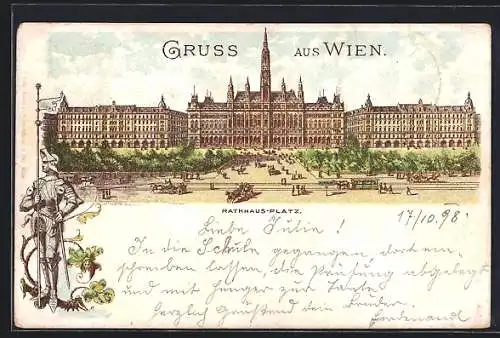 GRUSS AUS WIEN.
RATHHAUS-PLATZ.
17/10.98.
Liebe Julie!
In die Schule gegangen, dort ein-
schreiben lassen, die Prüfung abgelegt
und mit Hunger zur Tante
Herzlich Grüßend dein Bruder
Ferdinand